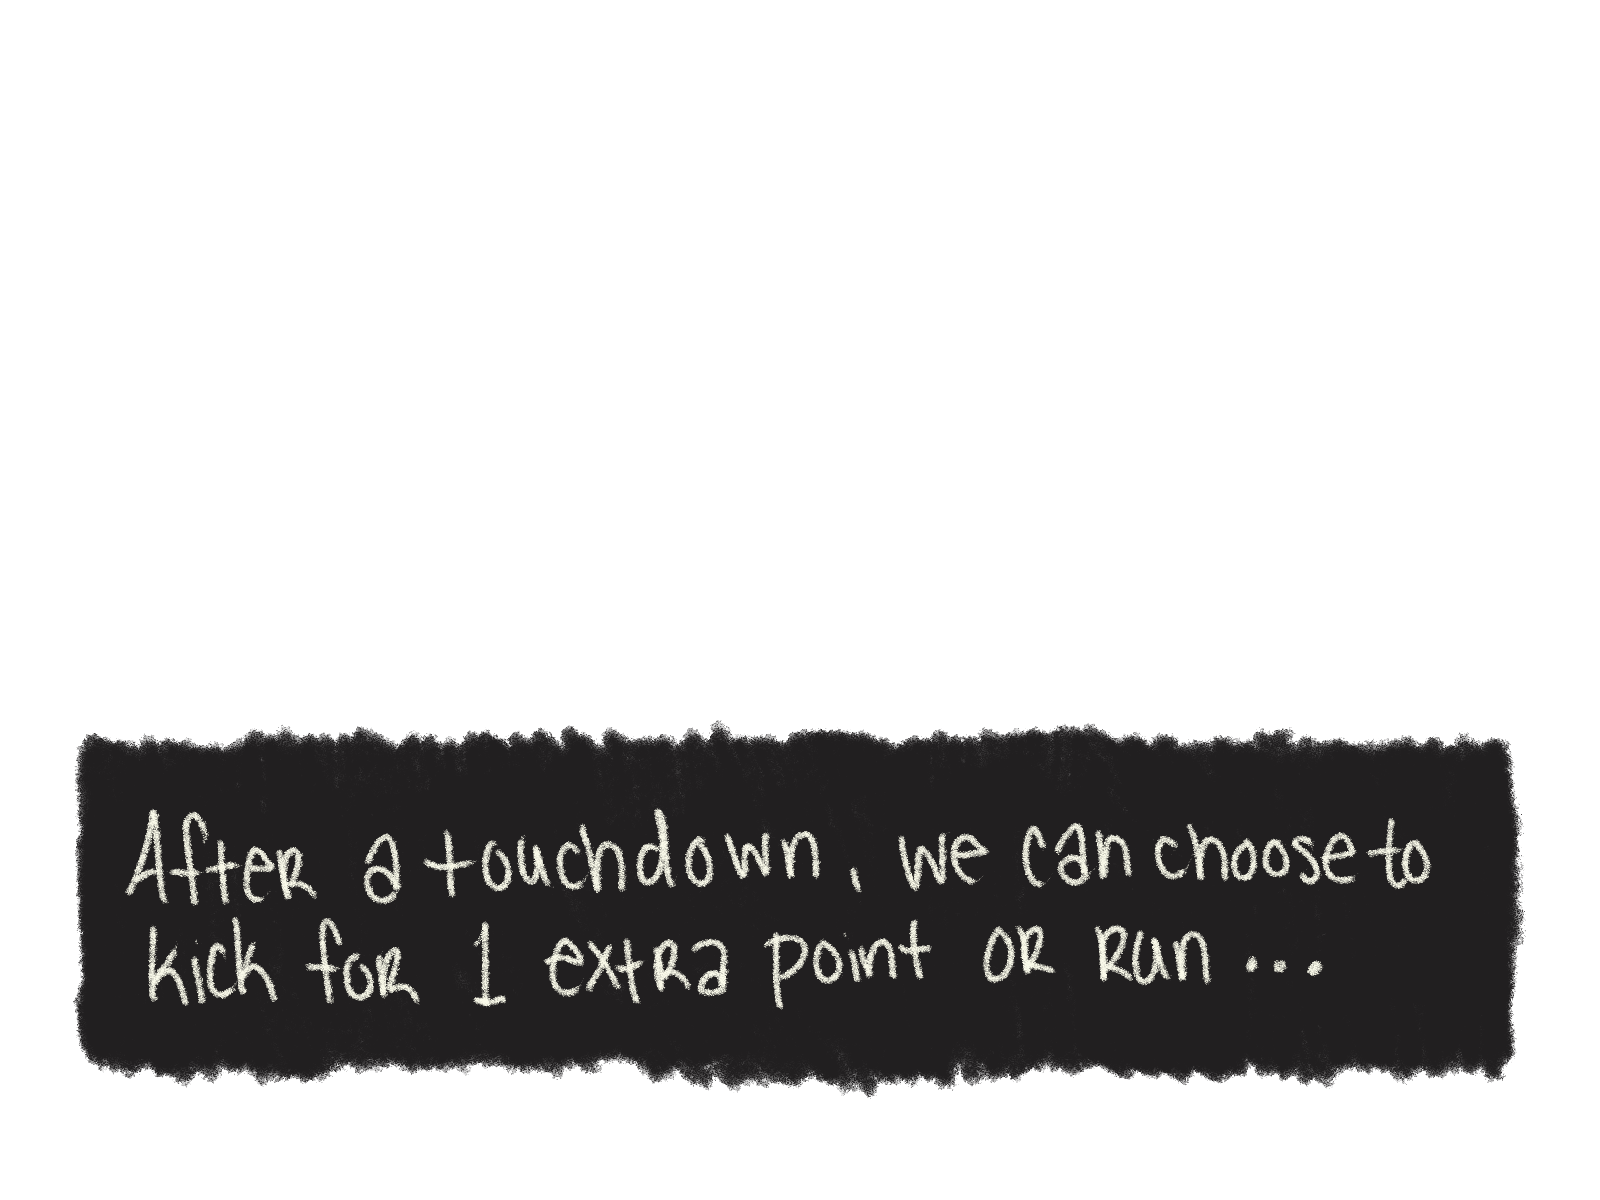 After a touchdown, we can choose to
kick for 1 extra point or run...